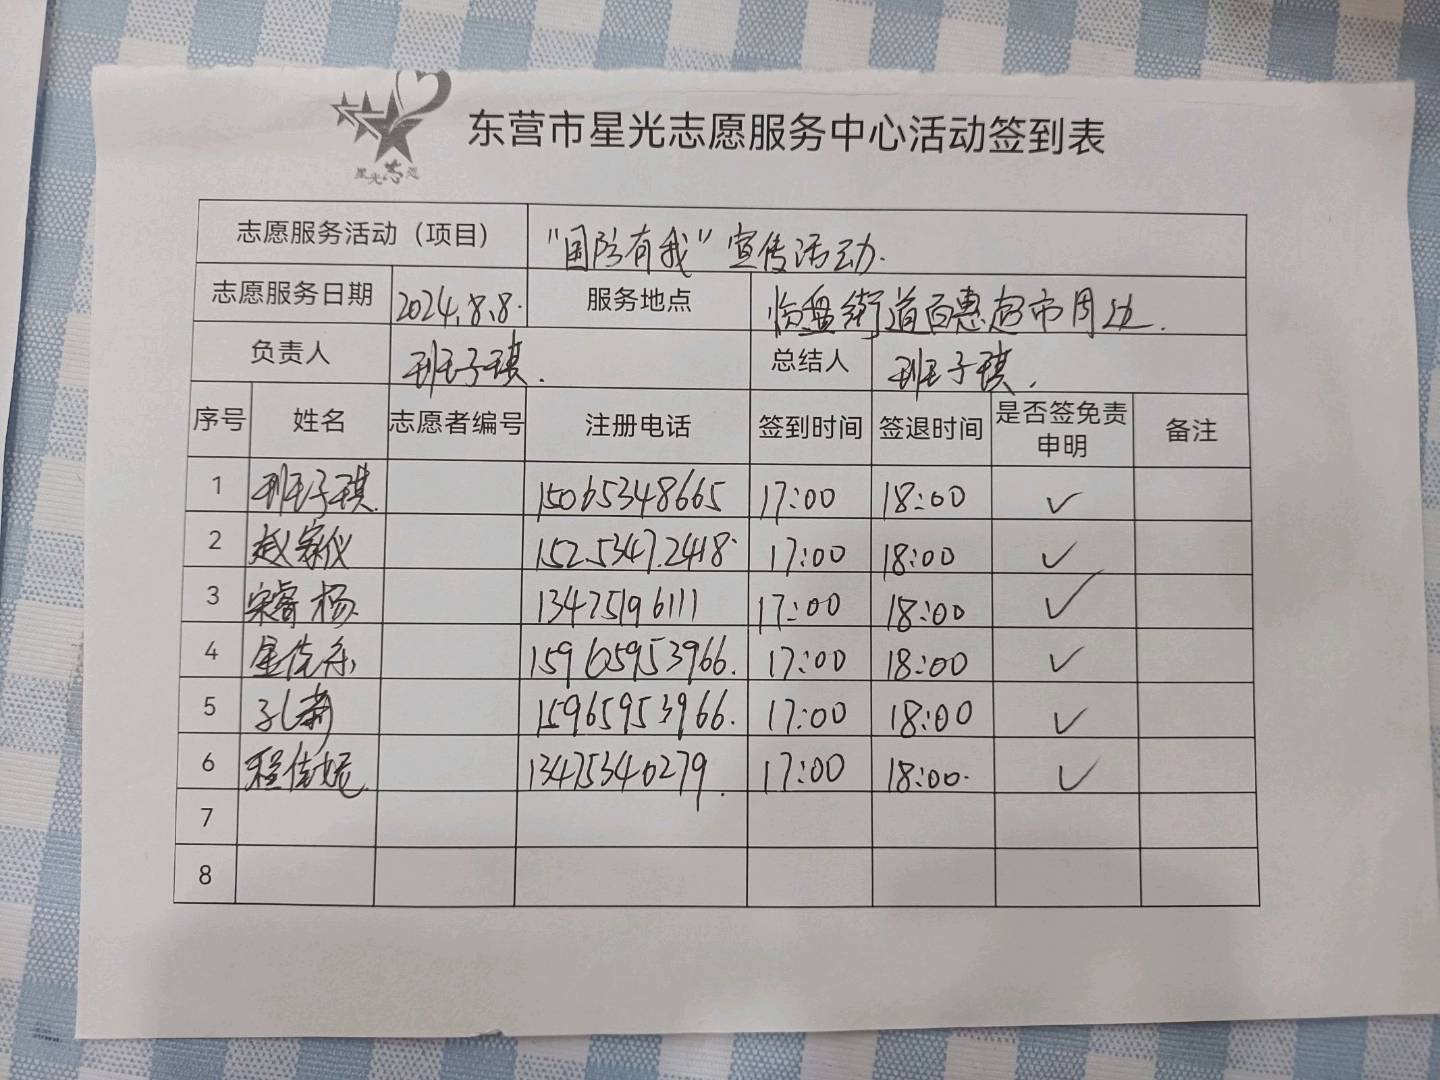 星光志愿
东营市星光志愿服务中心活动签到表
志愿服务活动（项目） “国防有我”宣传活动.
志愿服务日期 2024.8.8. 服务地点 临盘街道百惠超市周边.
负责人 班子琪. 总结人 班子琪.
序号 姓名 志愿者编号 注册电话 签到时间 签退时间 是否签免责申明 备注
1 班子琪. 15065348665 17:00 18:00 ✓
2 赵家仪 152.5347.2418. 17:00 18:00 ✓
3 宋睿杨. 13475196111 17:00 18:00 ✓
4 15965953966. 17:00 18:00 ✓
5 15965953966. 17:00 18:00 ✓
6 程佳妮. 13475340279. 17:00 18:00. ✓
7
8